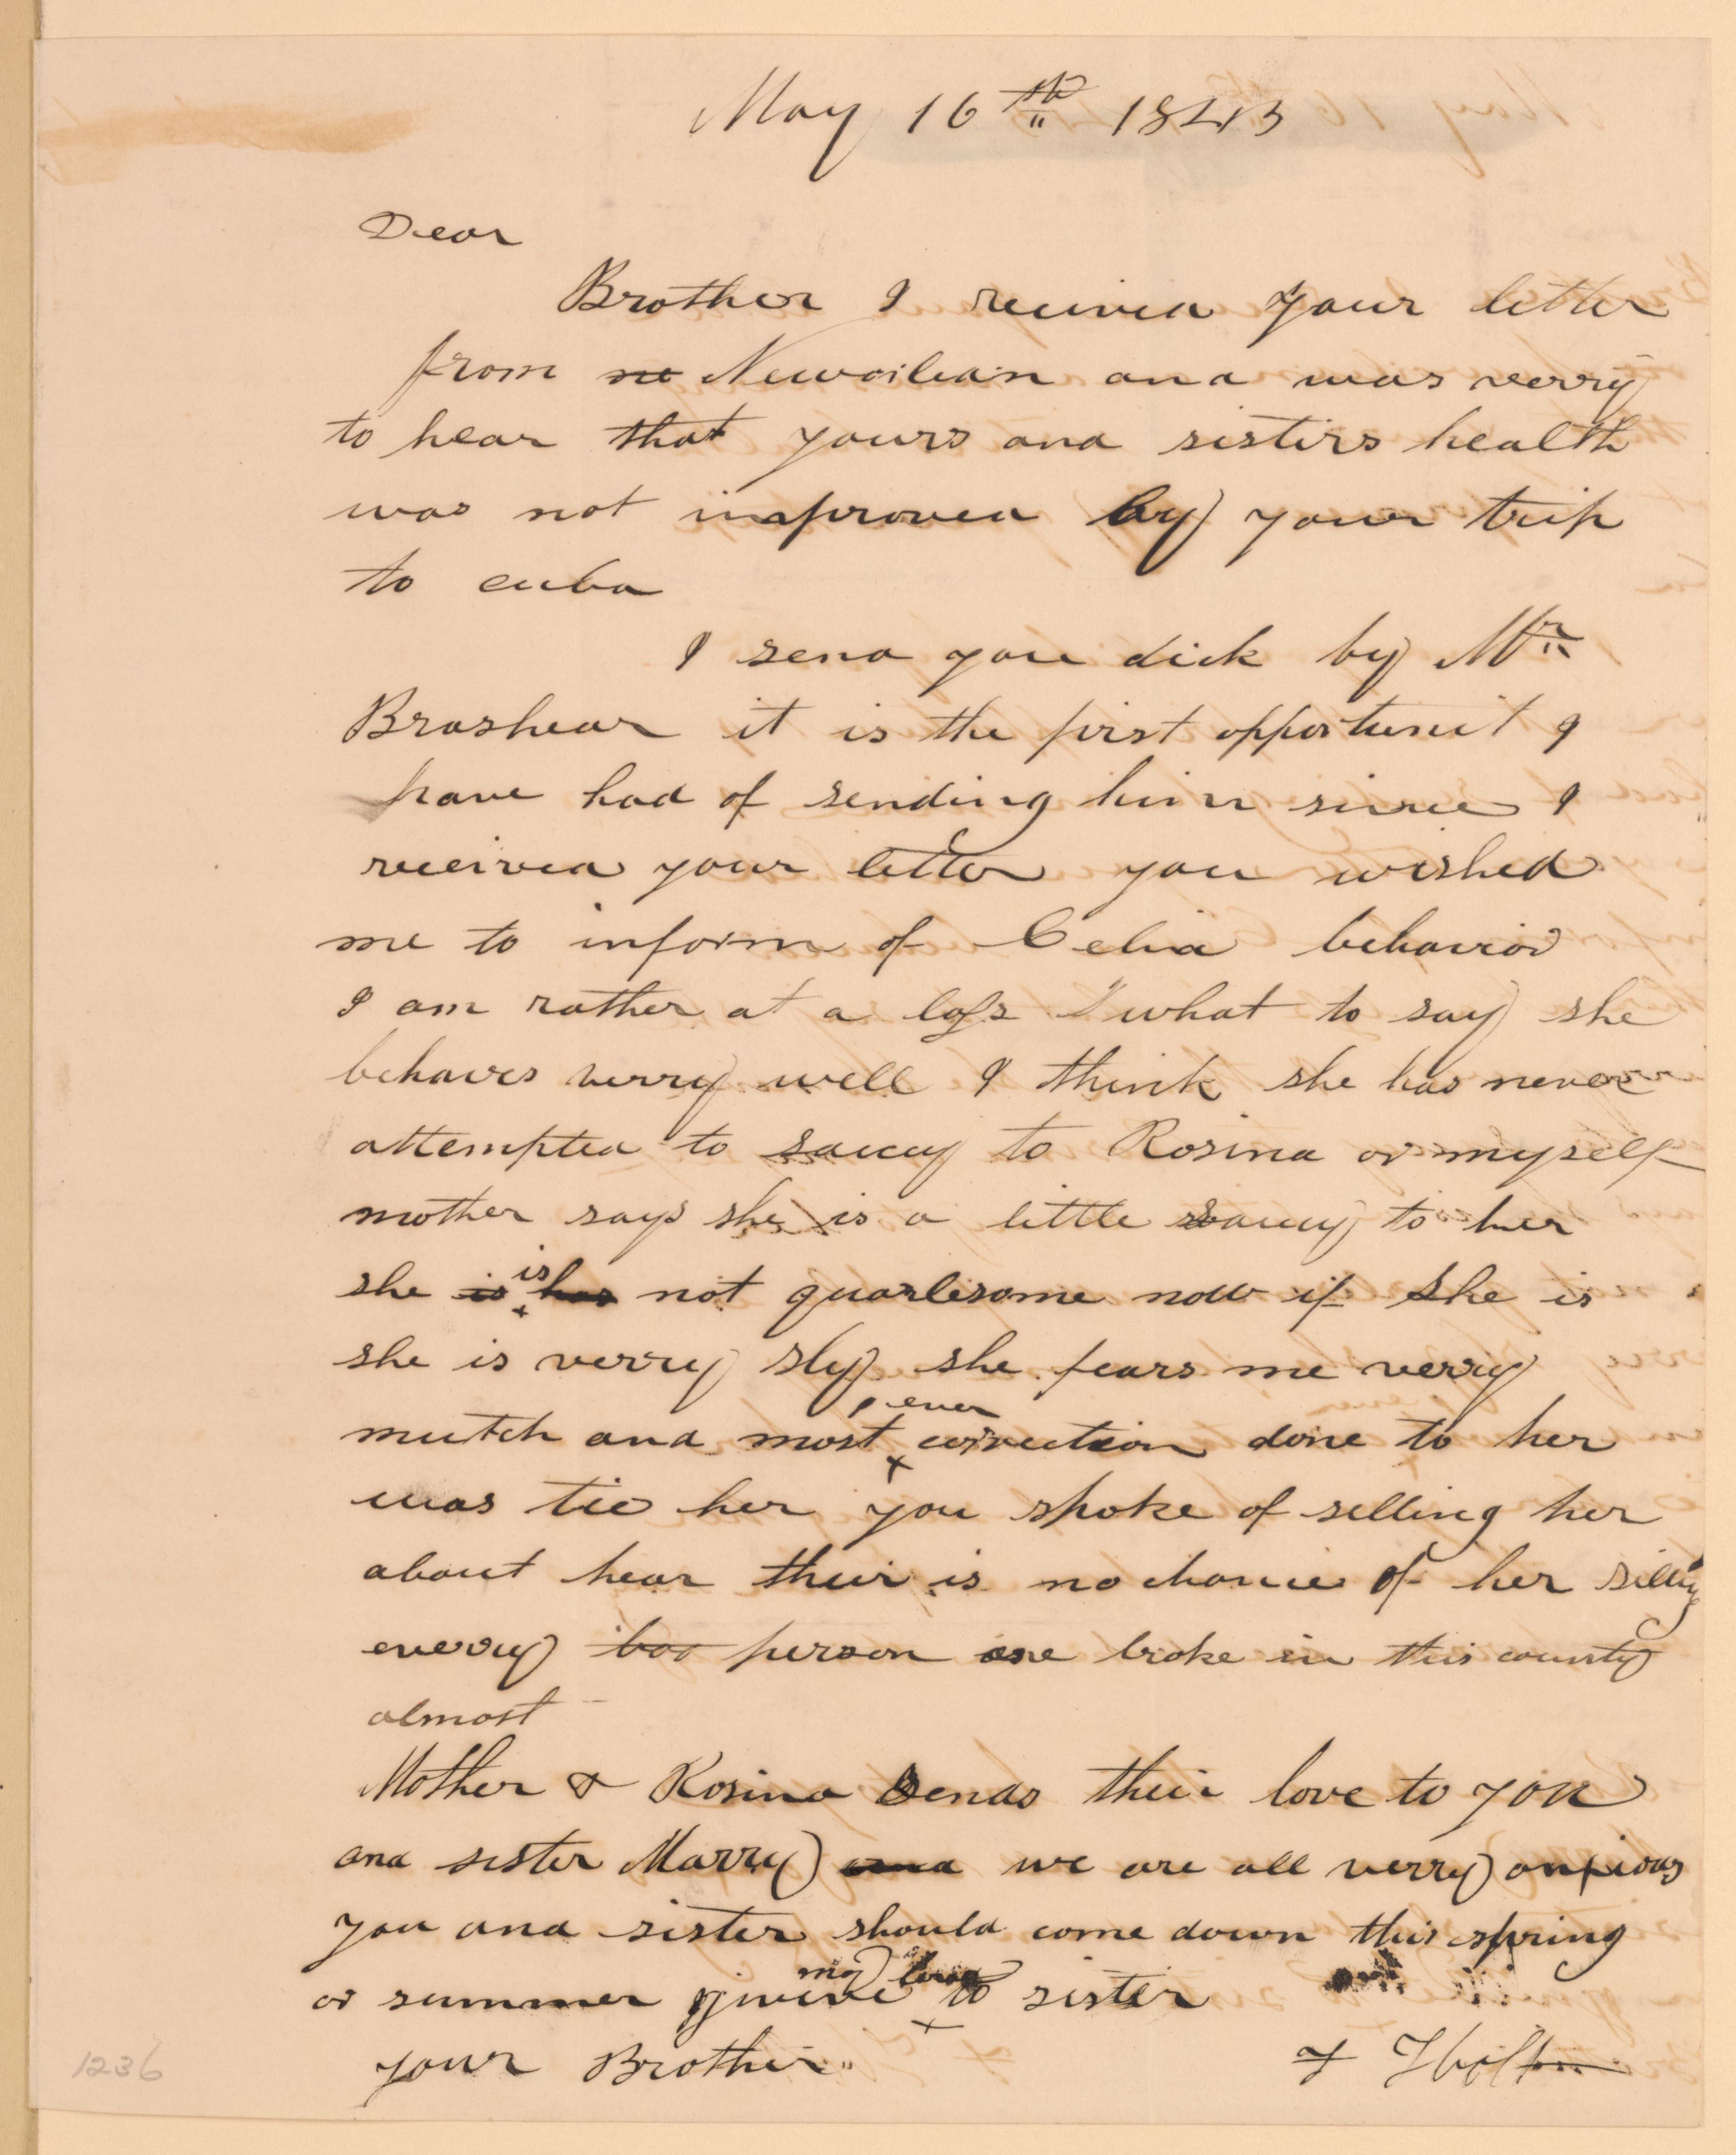 May 16th 1843
Dear
Brother I received your letter
from ne Neworlean and was verry
to hear that yours and sisters health
was not improved by your trip
to cuba
I send you dick by Mr
Brashear it is the first opportunit I
have had of sending him since I
received your letter you wished
me to inform of Celia behavior
I am rather at a loss what to say she
behaves verry well I think she has never
attempted to saucy to Rosina or myself
mother says she is a little saucy to her
she is is has not quarlesome now if she is
she is verry sly she fears me verry
mutch and most ever correction done to her
was tie her you spoke of selling her
about hear their is no chance of her selling
everry person are broke in this county
almost
Mother & Rosina sends their love to you
and sister Marry and we are all verry anxious
you and sister should come down this spring
or summer give my love to sister
your Brother
T Holt
1236